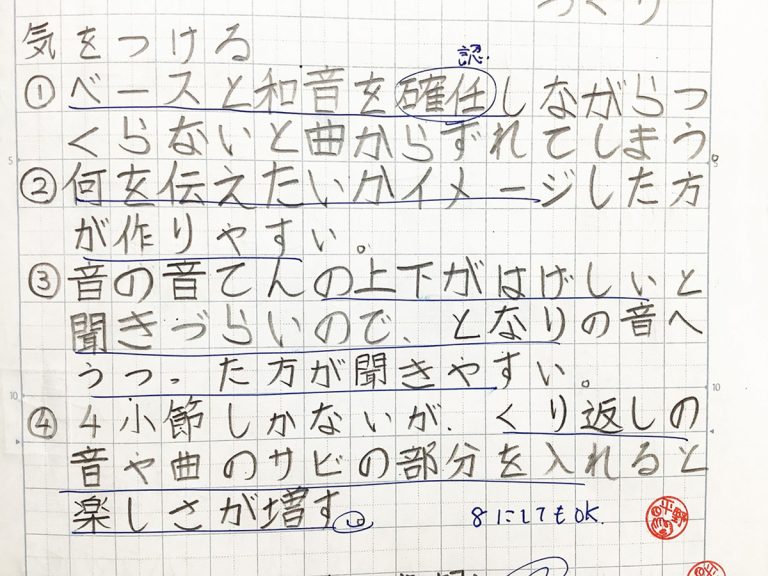 づくり
気をつける
認
①ベースと和音を確任しながらつ
くらないと曲からずれてしまう。
②何を伝えたいかイメージした方
が作りやすい。
③音の音てんの上下がはげしいと
聞きづらいので、となりの音へ
うつった方が聞きやすい。
④4小節しかないが、くり返しの
音や曲のサビの部分を入れると
楽しさが増す。
8にしてもOK.
平野
5
5
10
10